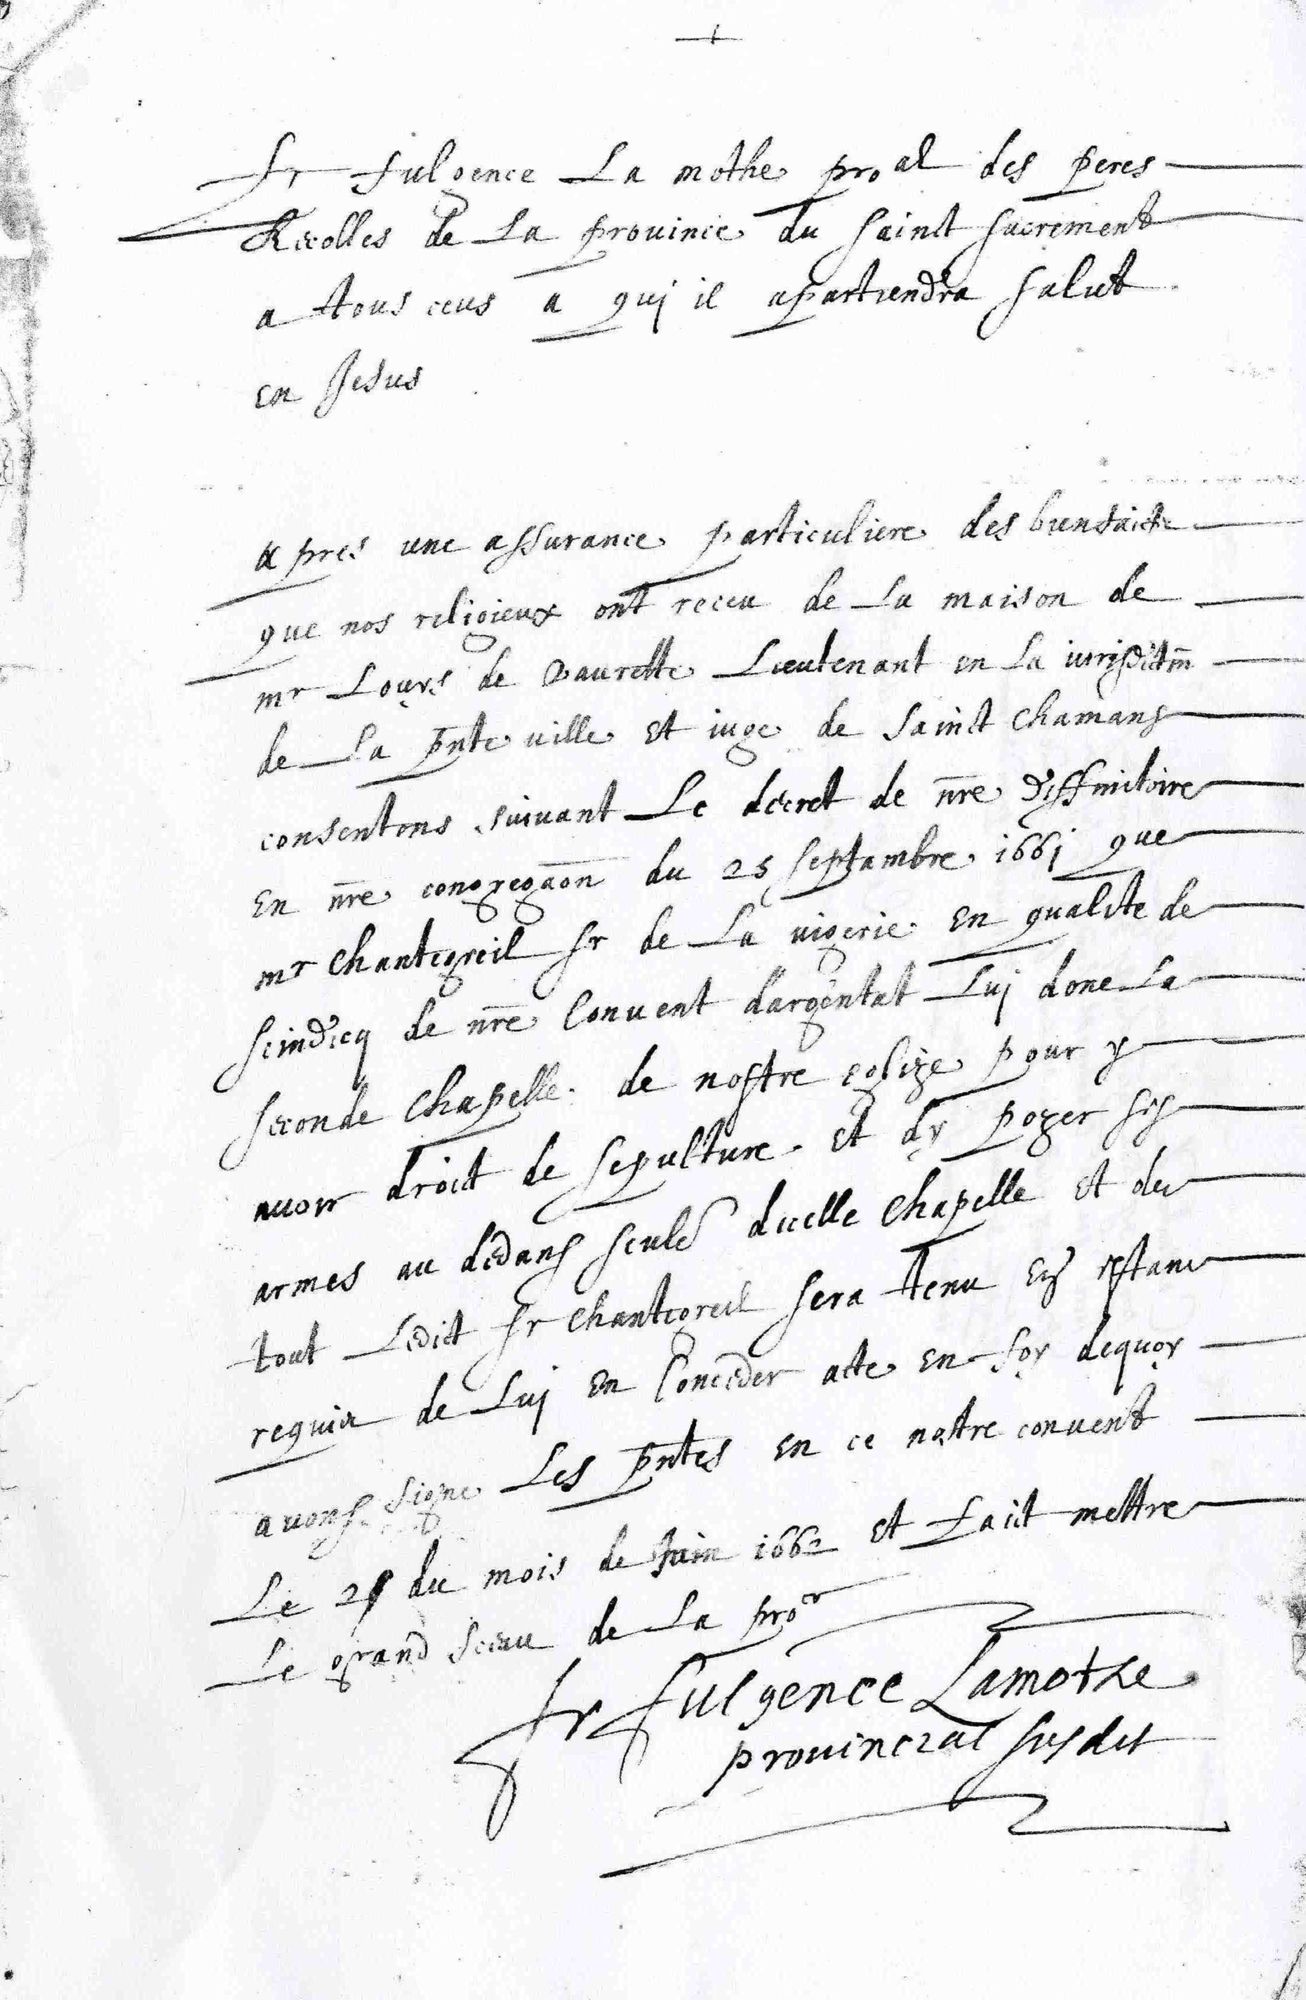 fr fulgence La mothe pro^al des peres
Recolles de La prouince du saint sacrement
a tous ceus a qui il apartiendra salut
en Jesus
Apres une assurance particuliere des bienfaicts
que nos religieux ont receu de La maison de
mr Louys de Vaurette Lieutenant en La iurisdictn
de La pnte ville et iuge de sainct chamans
consentons suivant Le decret de nre diffinitoire
en nre congregaon du 25 septambre 1661 que
mr chantegreil sr de La vigerie en qualite de
scindicq de nre Convent dargentat Lui done La
seconde chapelle de nostre eglize pour y
avoir droict de sepulture et dy pozer ses
armes au dedans seulet dicelle chapelle et du
tout Ledict sr chantegreil sera tenu en estant
requis de Lui en Conceder acte en foy dequoy
avons signe Les pntes en ce nostre convent
Le du mois de Juin 1662 et faict mettre
Le grand sceau de La pro^e
fr fulgence Lamothe
prouincial susdit